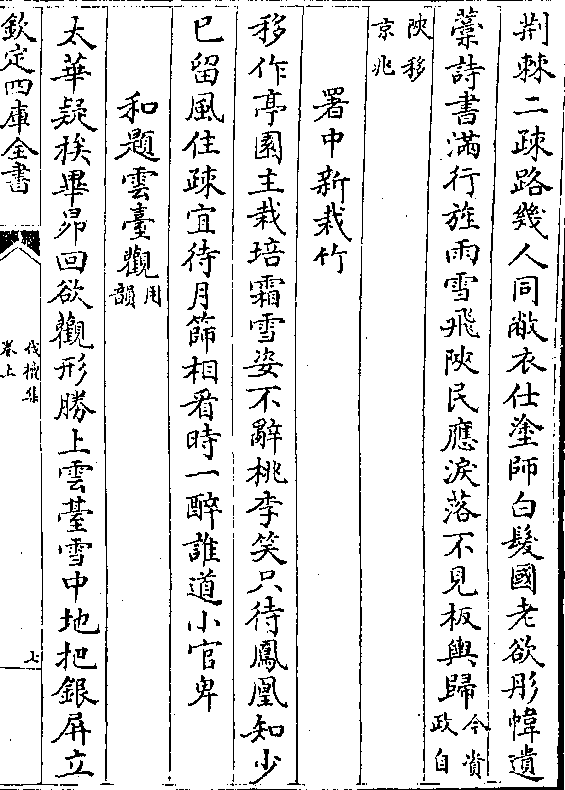 荆棘二疎路幾人同敝衣仕塗師白髮國老欲彤幃遺
藁詩書滿行旌雨雪飛陜民應淚落不見板輿歸今資政自
陜移京兆
署中新栽竹
移作亭園主栽培霜雪姿不辭桃李笑只待鳳凰知少
已留風住疎宜待月篩相看時一醉誰道小官卑
和題雲臺觀用韻
太華疑挨畢昴回欲觀形勝上雲臺雪中地把銀屏立
欽定四庫全書
伐檀集
卷上
七